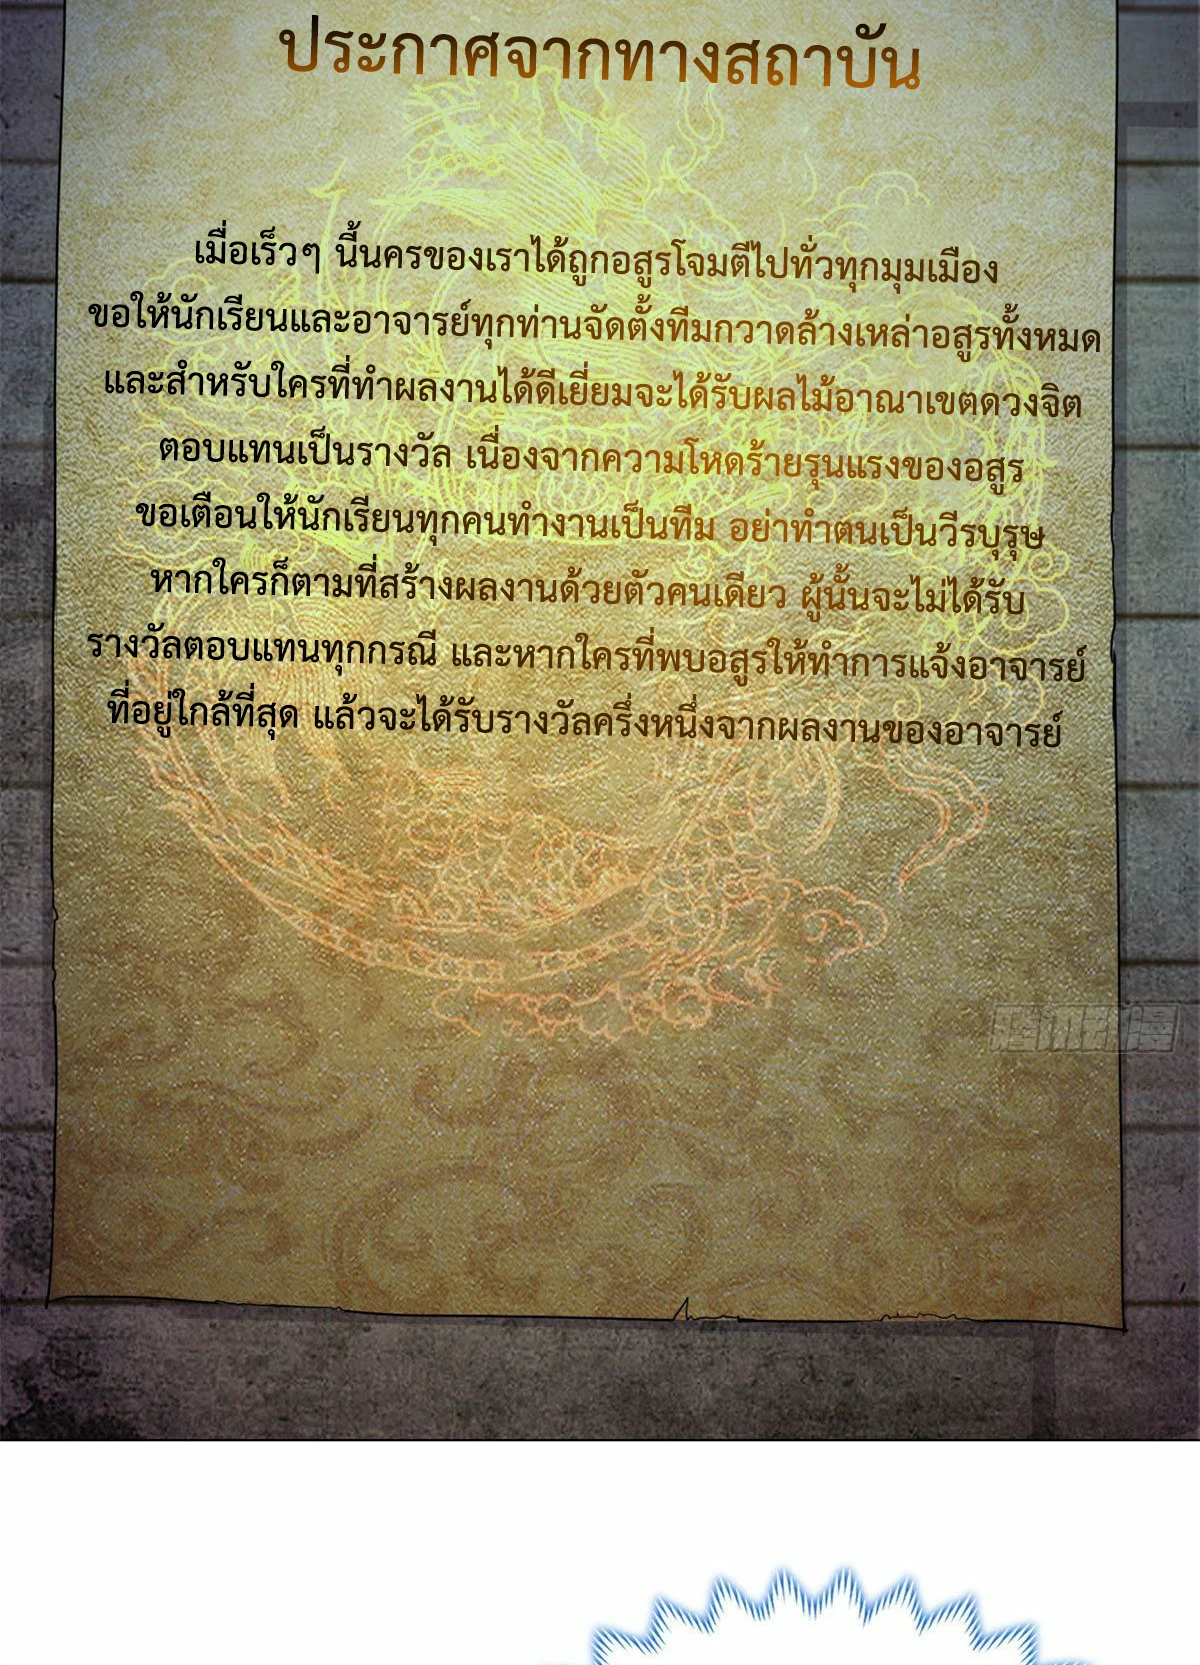 ประกาศจากทางสถาบัน
เมื่อเร็วๆ นี้นครของเราได้ถูกอสูรโจมตีไปทั่วทุกมุมเมือง
ขอให้นักเรียนและอาจารย์ทุกท่านจัดตั้งทีมกวาดล้างเหล่าอสูรทั้งหมด
และสำหรับใครที่ทำผลงานได้ดีเยี่ยมจะได้รับผลไม้อาณาเขตดวงจิต
ตอบแทนเป็นรางวัล เนื่องจากความโหดร้ายรุนแรงของอสูร
ขอเตือนให้นักเรียนทุกคนทำงานเป็นทีม อย่าทำตนเป็นวีรบุรุษ
หากใครก็ตามที่สร้างผลงานด้วยตัวคนเดียว ผู้นั้นจะไม่ได้รับ
รางวัลตอบแทนทุกกรณี และหากใครที่พบอสูรให้ทำการแจ้งอาจารย์
ที่อยู่ใกล้ที่สุด แล้วจะได้รับรางวัลครึ่งหนึ่งจากผลงานของอาจารย์
腾讯动漫